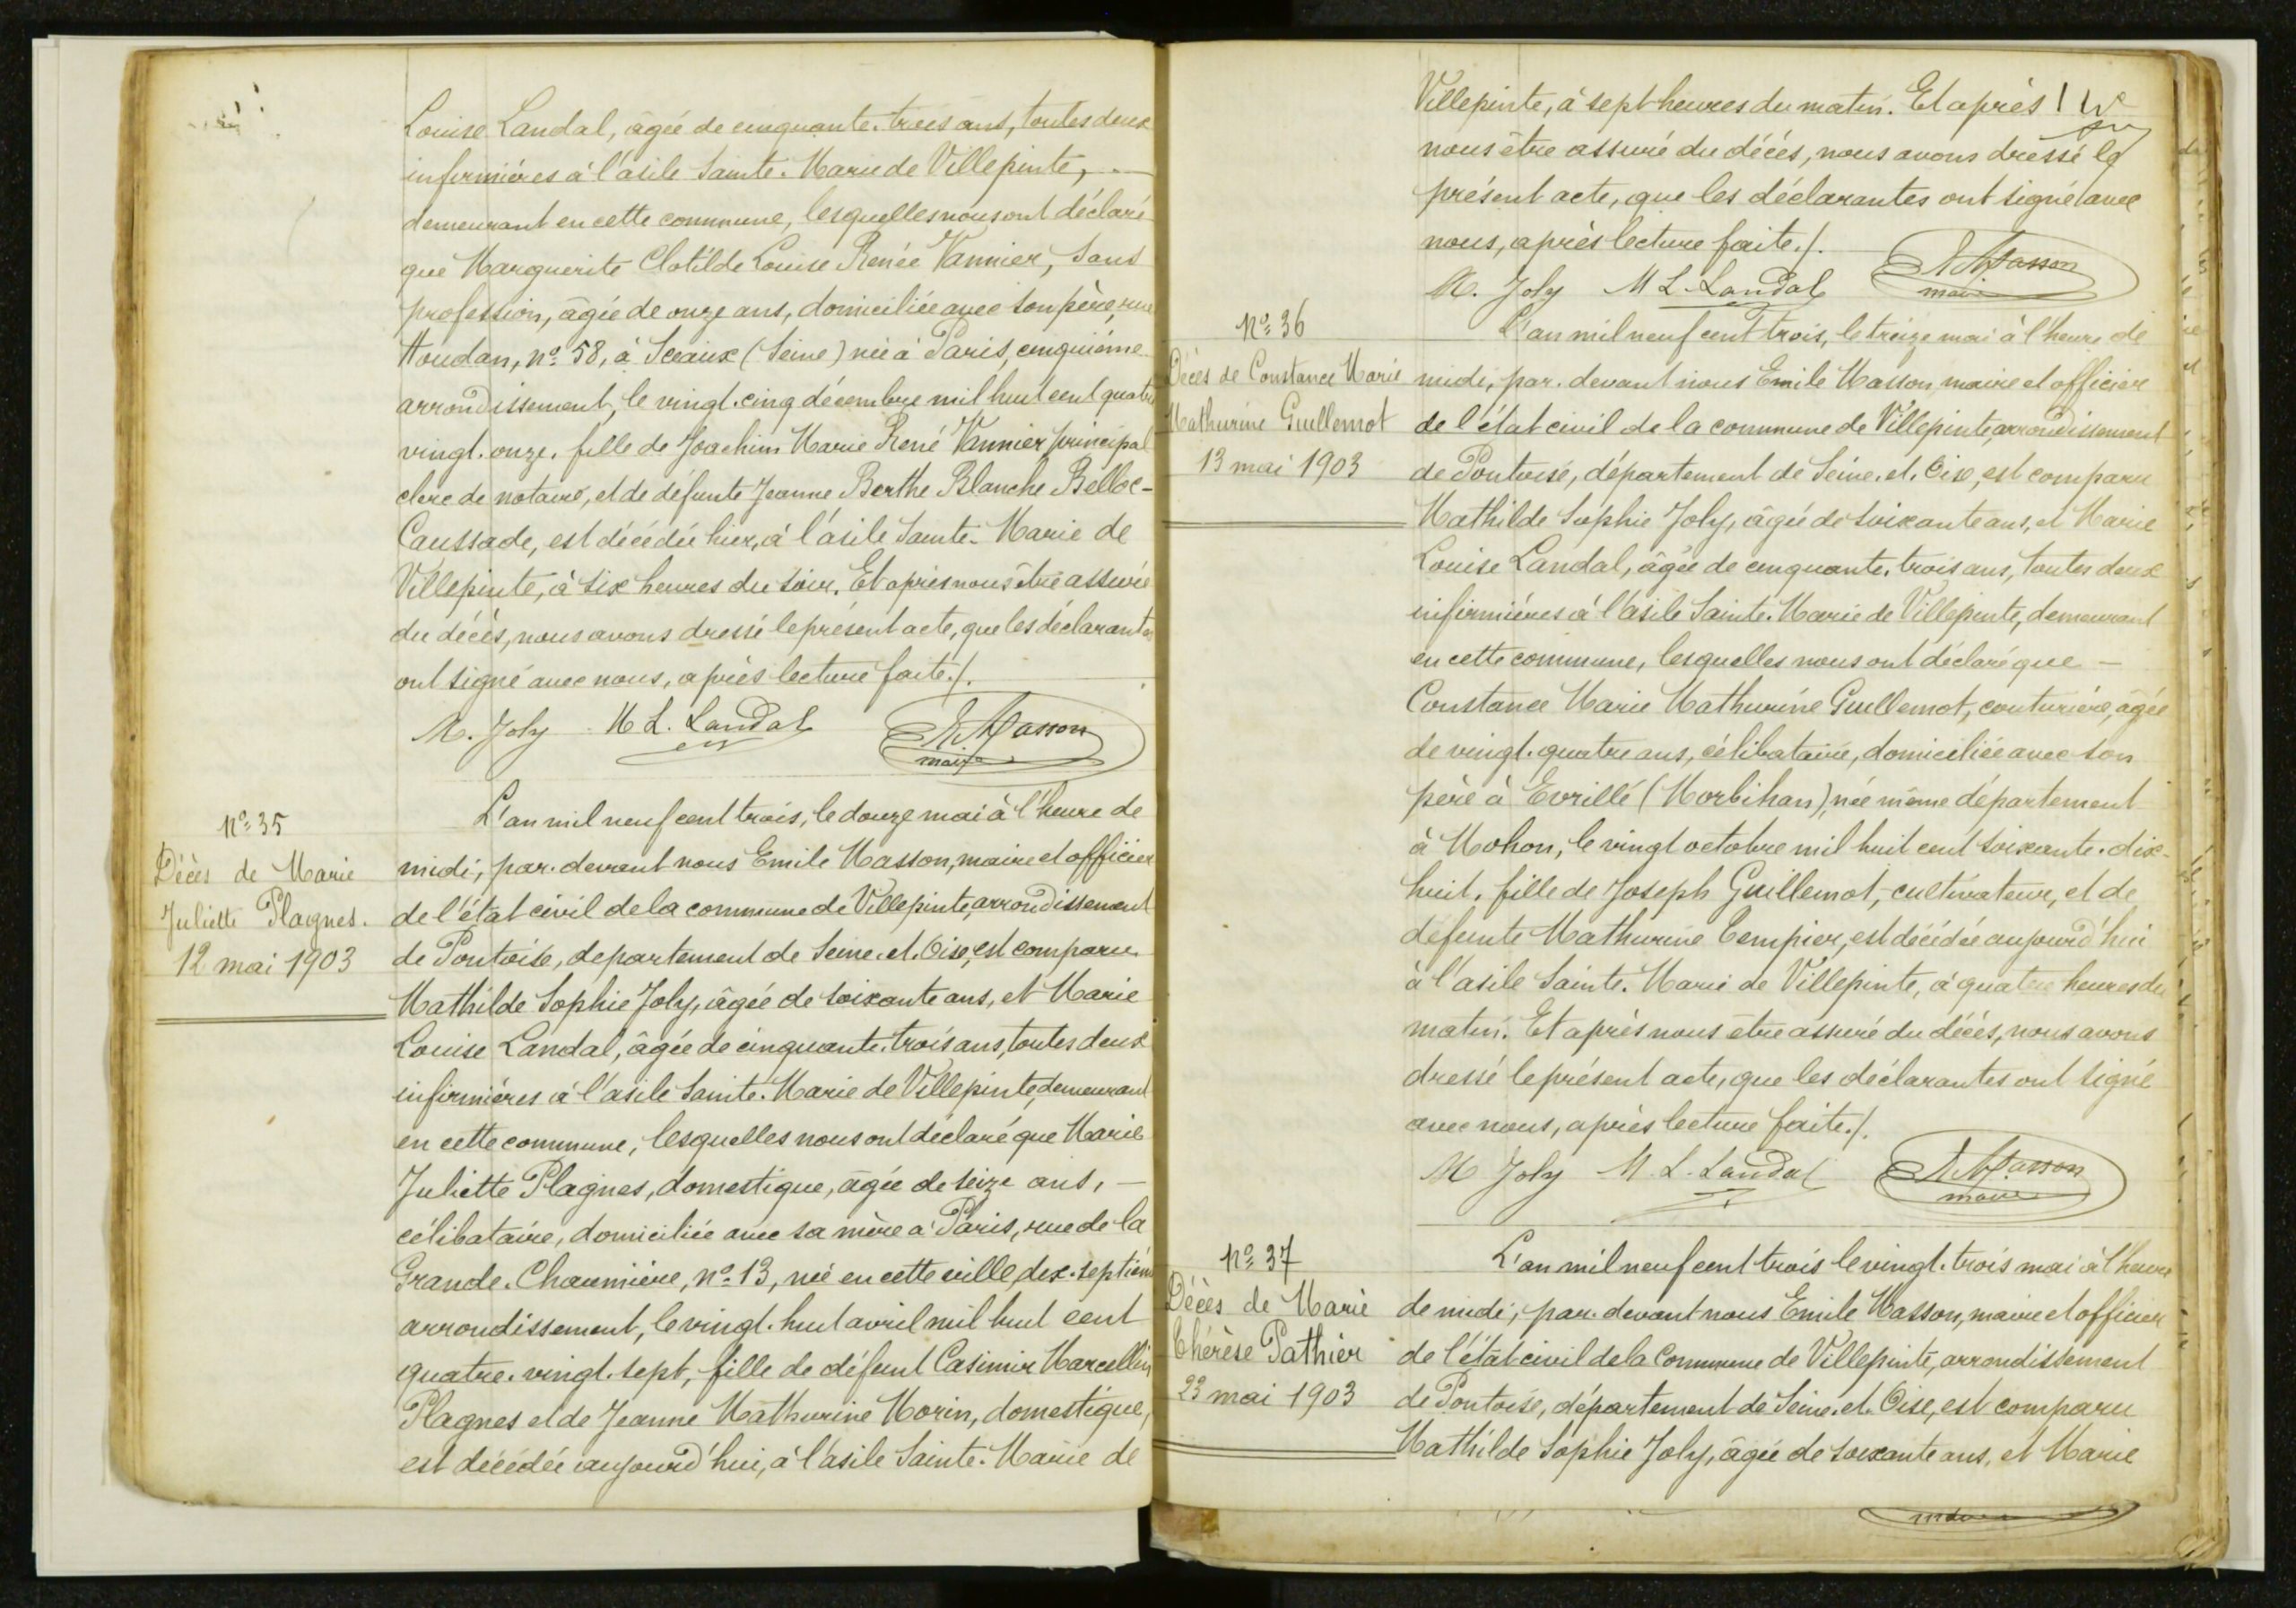 Louise Landal, âgée de cinquante-trois ans, toutes deux
infirmières à l'asile Sainte-Marie de Villepinte,
demeurant en cette commune, lesquelles nous ont déclaré
que Marguerite Clotilde Louise Renée Vannier, sans
profession, âgée de onze ans, domiciliée avec son père, rue
Houdan, n° 58, à Sceaux (Seine) née à Paris, cinquième
arrondissement, le vingt-cinq décembre mil huit cent quatre
vingt-onze, fille de Joachim Marie René Vannier principal
clerc de notaire, et de défunte Jeanne Berthe Blanche Belloc-
Caussade, est décédée hier, à l'asile Sainte-Marie de
Villepinte, à six heures du soir. Et après nous être assuré
du décès, nous avons dressé le présent acte, que les déclarantes
ont signé avec nous, après lecture faite./.
M. Joly M L. Landal E. Masson
maire
N° 35
Décès de Marie
Juliette Plagnes.
12 mai 1903
L'an mil neuf cent trois, le douze mai à l'heure de
midi, par-devant nous Emile Masson, maire et officier
de l'état civil de la commune de Villepinte, arrondissement
de Pontoise, departement de Seine-et-Oise, est comparu
Mathilde Sophie Joly, âgée de soixante ans, et Marie
Louise Landal, âgée de cinquante-trois ans, toutes deux
infirmières à l'asile Sainte-Marie de Villepinte, demeurant
en cette commune, lesquelles nous ont déclaré que Marie
Juliette Plagnes, domestique, âgée de seize ans, —
célibataire, domiciliée avec sa mère à Paris, rue de la
Grande-Chaumière, n° 13, née en cette ville, dix-septième
arrondissement, le vingt-huit avril mil huit cent
quatre-vingt-sept, fille de défunt Casimir Marcellin
Plagnes et de Jeanne Mathurine Morin, domestique,
est décédée aujourd'hui, à l'asile Sainte-Marie de
Villepinte, à sept heures du matin. Et après
nous être assuré du décès, nous avons dressé le
présent acte, que les déclarantes ont signé avec
nous, après lecture faite./.
M. Joly M L. Landal E. Masson
maire
N° 36
Décès de Constance Marie
Mathurine Guillemot
13 mai 1903
L'an mil neuf cent trois, le treize mai à l'heure de
midi, par-devant nous Emile Masson, maire et officier
de l'état civil de la commune de Villepinte, arrondissement
de Pontoise, département de Seine-et-Oise, est comparu
Mathilde Sophie Joly, âgée de soixante ans, et Marie
Louise Landal, âgée de cinquante-trois ans, toutes deux
infirmières à l'asile Sainte-Marie de Villepinte, demeurant
en cette commune, lesquelles nous ont déclaré que —
Constance Marie Mathurine Guillemot, couturière, âgée
de vingt-quatre ans, célibataire, domiciliée avec son
père à Evrillé (Morbihan), née même département
à Mohon, le vingt octobre mil huit cent soixante-dix-
huit, fille de Joseph Guillemot, cultivateur, et de
défunte Mathurine Tempier, est décédée aujourd'hui
à l'asile Sainte-Marie de Villepinte, à quatre heures du
matin. Et après nous être assuré du décès, nous avons
dressé le présent acte, que les déclarantes ont signé
avec nous, après lecture faite./.
M Joly M. L. Landal E. Masson
maire
N° 37
Décès de Marie
Thérèse Pathier
23 mai 1903
L'an mil neuf cent trois le vingt-trois mai à l'heure
de midi, par-devant nous Emile Masson, maire et officier
de l'état civil de la Commune de Villepinte, arrondissement
de Pontoise, département de Seine-et-Oise, est comparu
Mathilde Sophie Joly, âgée de soixante ans, et Marie